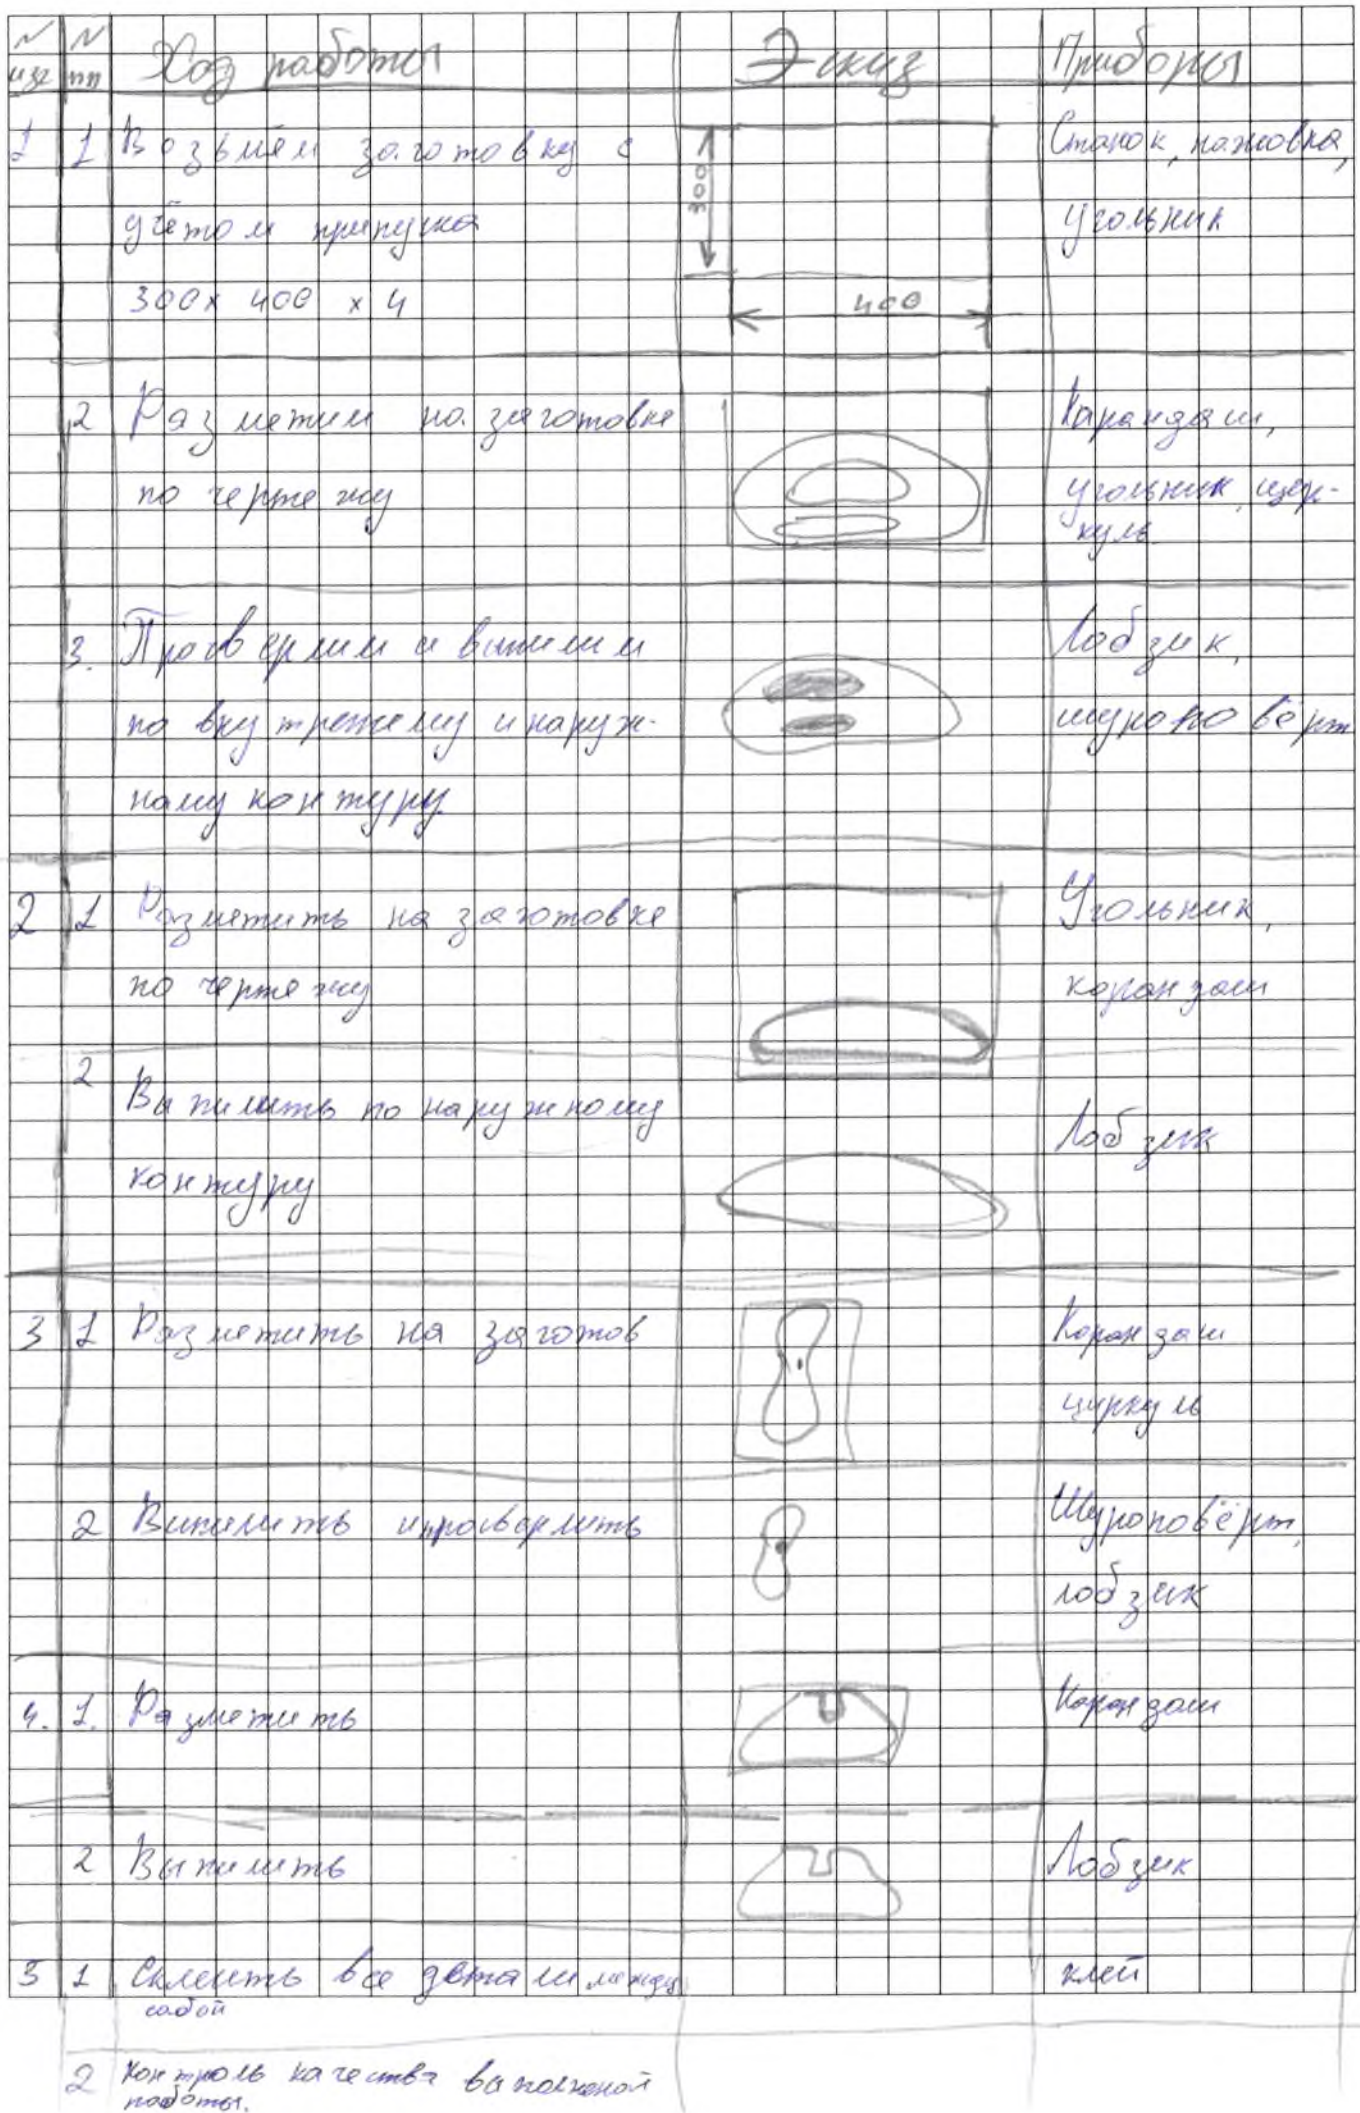 N изг
N пп
Ход работы
Эскиз
Приборы
1 1 Возьмём заготовку с
учётом припуска
300 х 400 х 4
300
400
Станок, ножовка,
угольник
2 Разметим на заготовке
по чертежу
Карандаш,
угольник, цир-
куль
3. Просверлим и выпилим
по внутренему и наруж-
наму контуру.
Лобзик,
шуроповёрт
2 1 Разметить на заготовке
по чертежу
Угольник,
карандаш
2
Выпилить по наружному
контуру
Лобзик
3 1 Разметить на заготов
Карандаш
циркуль
2 Выпилить и просверлить
Шуроповёрт,
лобзик
4. 1. Разметить
Карандаш
2 Выпилить
Лобзик
5 1 Склеить все детали между
собой
клей
2 Контроль качества выполненой
работы.